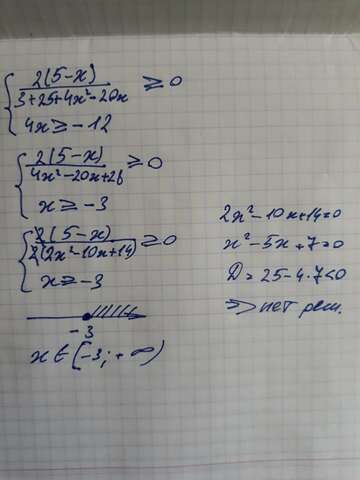 2(5-x)
3+25+4x²-20x ≥ 0
4x ≥ -12
2(5-x)
4x²-20x+28 ≥ 0
x ≥ -3
2(5-x)
2(2x²-10x+14) ≥ 0
x ≥ -3
-3
x ∈ [-3; +∞)
2x²-10x+14=0
x²-5x+7=0
D = 25-4·7<0
=> нет реш.